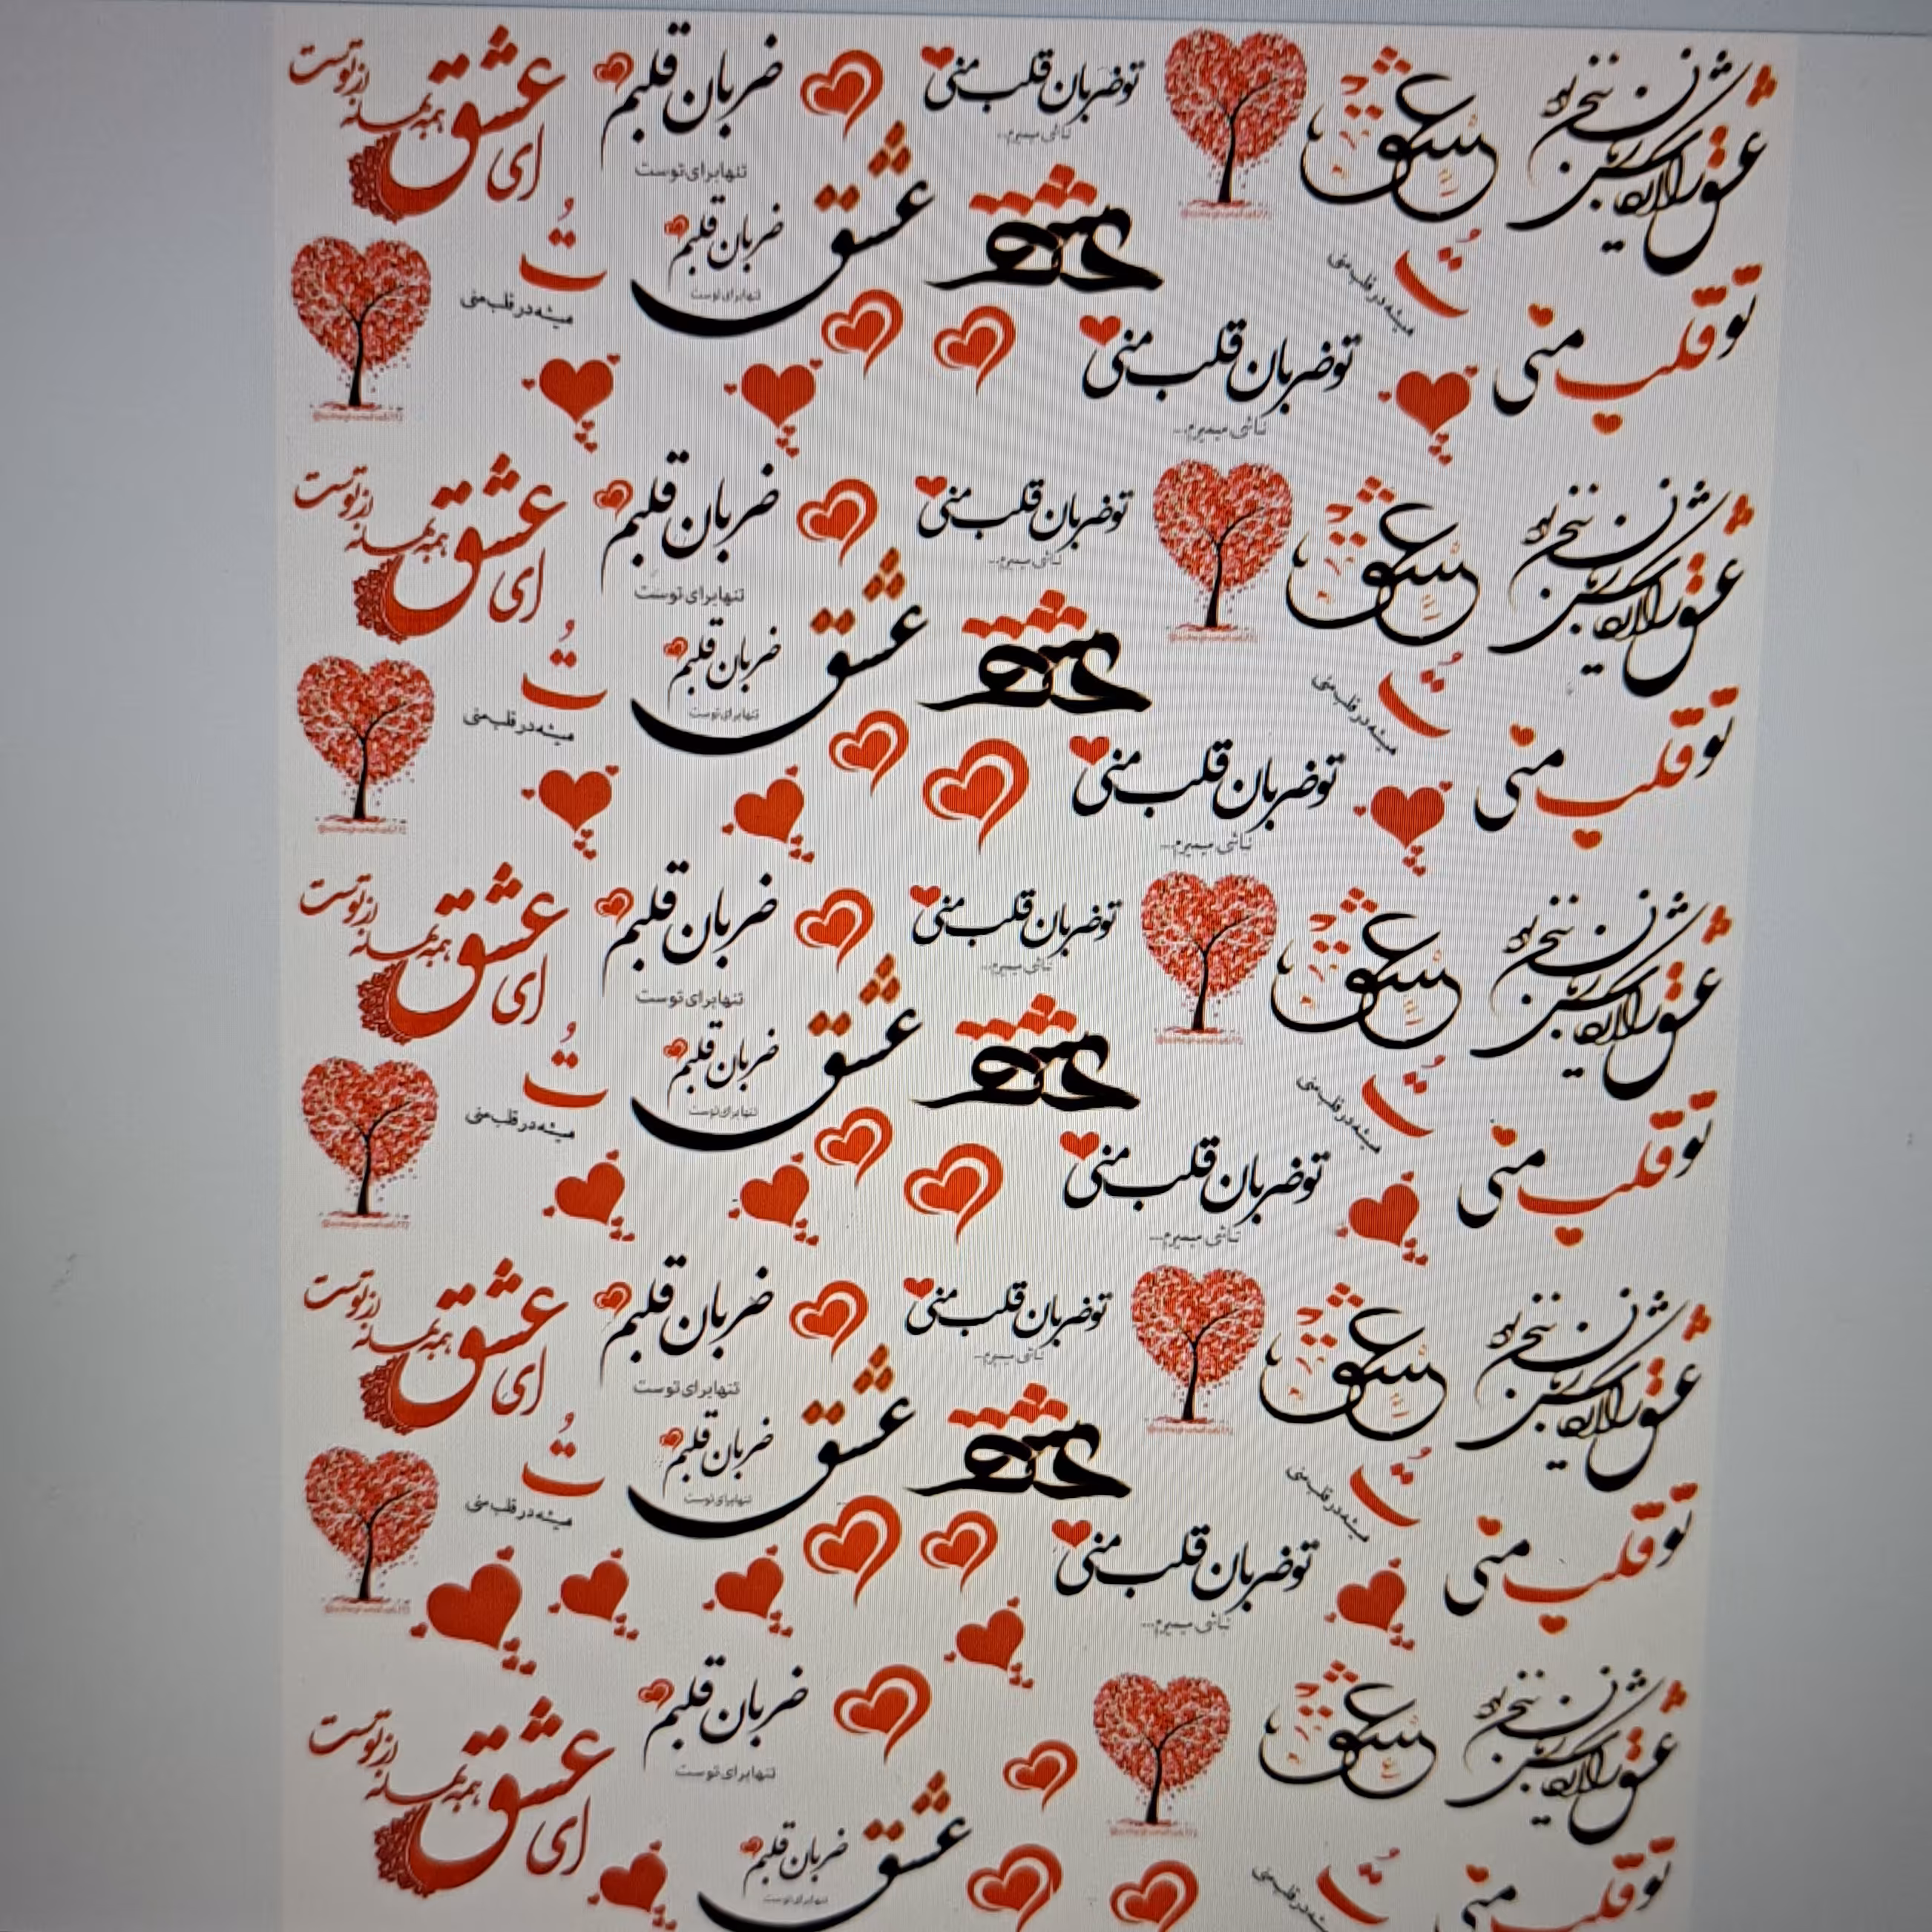 ای عشق همه بهانه از توست
ضربان قلبم
تنها برای توست
تو ضربان قلب منی
نباشی میمیرم...
عشق
عشق
ضربان قلبم
تنها برای توست
عشق
تُ
میشه در قلب منی
تُ
میشه در قلب منی
تو ضربان قلب منی
نباشی میمیرم...
تو قلب منی
ای عشق همه بهانه از توست
ضربان قلبم
تنها برای توست
تو ضربان قلب منی
نباشی میمیرم...
عشق
عشق
ضربان قلبم
تنها برای توست
عشق
تُ
میشه در قلب منی
تُ
میشه در قلب منی
تو ضربان قلب منی
نباشی میمیرم...
تو قلب منی
ای عشق همه بهانه از توست
ضربان قلبم
تنها برای توست
تو ضربان قلب منی
نباشی میمیرم...
عشق
عشق
ضربان قلبم
تنها برای توست
عشق
تُ
میشه در قلب منی
تُ
میشه در قلب منی
تو ضربان قلب منی
نباشی میمیرم...
تو قلب منی
ای عشق همه بهانه از توست
ضربان قلبم
تنها برای توست
تو ضربان قلب منی
نباشی میمیرم...
عشق
عشق
ضربان قلبم
تنها برای توست
عشق
تُ
میشه در قلب منی
تُ
میشه در قلب منی
تو ضربان قلب منی
نباشی میمیرم...
تو قلب منی
ای عشق همه بهانه از توست
ضربان قلبم
تنها برای توست
عشق
عشق
ضربان قلبم
تنها برای توست
تُ
میشه در قلب منی
تو قلب منی